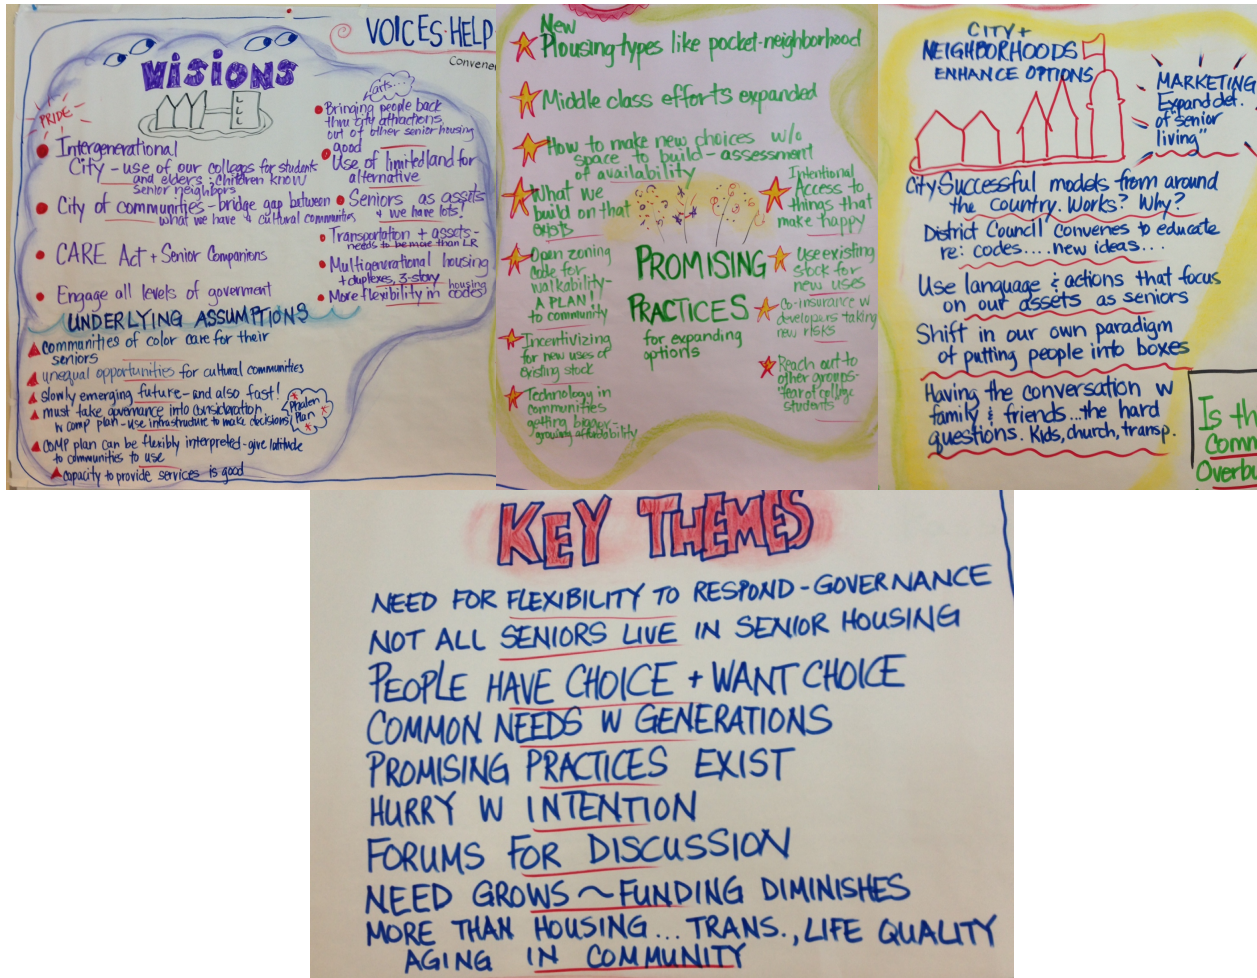 VOICES·HELP
Convene
VISIONS
PRIDE
Intergenerational
City - use of our colleges for students
and elders ; children know
senior neighbors
City of communities - bridge gap between
what we have & cultural communities
CARE Act + Senior Companions
Engage all levels of goverment
arts...
Bringing people back
thru city attractions,
out of other senior housing
good
Use of limited land for
alternative
Seniors as assets
+ we have lots!
Transportation + assets -
needs to be more than LR
Multigenerational housing
+ duplexes, 3-story
More flexibility in housing codes
UNDERLYING ASSUMPTIONS
communities of color care for their
seniors
unequal opportunities for cultural communities
slowly emerging future - and also fast!
must take governance into consideration
w comp plan - use infrastructure to make decisions
Phalen
Plan
COMP plan can be flexibly interpreted - give latitude
to communities to use
capacity to provide services is good
New
Housing types like pocket-neighborhood
Middle class efforts expanded
How to make new choices w/o
space to build - assessment
of availability
What we
build on that
exists
Open zoning
code for
walkability -
A PLAN!
to community
Incentivizing
for new uses of
existing stock
Technology in
communities
getting bigger -
growing affordability
PROMISING
PRACTICES
for expanding
options
Intentional
Access to
things that
make happy
Use existing
stock for
new uses
Co-insurance w
developers taking
new risks
Reach out to
other groups -
fear of college
students
CITY +
NEIGHBORHOODS
ENHANCE OPTIONS
MARKETING
Expand def.
of "senior
living"
City Successful models from around
the country. Works? Why?
District Council Convenes to educate
re: codes....new ideas...
Use language & actions that focus
on our assets as seniors
Shift in our own paradigm
of putting people into boxes
Having the conversation w
family & friends...the hard
questions. Kids, church, transp.
Is th
Comm
Overbu
KEY THEMES
NEED FOR FLEXIBILITY TO RESPOND - GOVERNANCE
NOT ALL SENIORS LIVE IN SENIOR HOUSING
PEOPLE HAVE CHOICE + WANT CHOICE
COMMON NEEDS W GENERATIONS
PROMISING PRACTICES EXIST
HURRY W INTENTION
FORUMS FOR DISCUSSION
NEED GROWS ~ FUNDING DIMINISHES
MORE THAN HOUSING... TRANS., LIFE QUALITY
AGING IN COMMUNITY